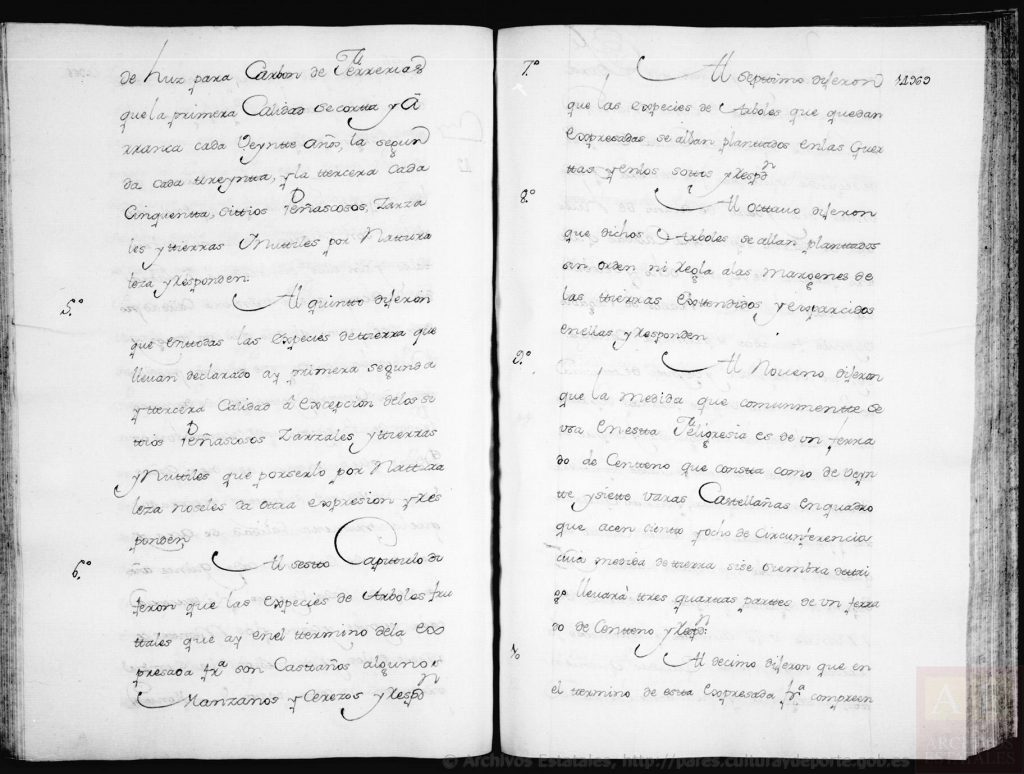 de Luz para Carbon de Ferrerias
que la primera Calidad se cortta y A
rranca cada Veyntte años, la segun
da cada ttreyntta, y la ttercera cada
Cinquentta, sittios Peñascosos, Zarza
les y ttierras Ynuttiles por Nattura
leza y Responden
5.º Al quintto dijeron
que en ttodas las especies de ttierra que
lleuan declarado ay primera segunda
y ttercera Calidad â excepcion de los si
ttios Peñascosos Zarzales y ttierras
ynuttiles que por serlo por Nattura
leza no seles da ottra expresion y Res
ponden
6.º Al sestto Capittulo di
jeron que las especies de Arboles fru
ttales que ay en el ttermino de la ex
presada frª son Casttaños algunos
Manzanos y Cerezos y Respdn
7.º Al septtimo dijeron
que las especies de Arboles que quedan
expresadas se allan planttados en las Guer
ttas y en los sottos y Respdn
8.º Al octtauo dijeron
que dichos Arboles se allan planttados
sin orden ni Regla a las margenes de
las ttierras exttendidos y esparcidos
en ellas y Responden
9.º Al Noueno dijeron
que la medida que comunmentte se
vsa en estta Feligresia es de vn ferra
do de Centteno que constta como de veyn
tte y siette varas Casttellañas en quadro
que acen cientto y ocho de Circunferencia
cuia medida de ttierra si se siembra de ttri
go lleuarà ttres quarttas parttes de vn ferra
do de Centteno y Respdn
Al decimo dijeron que en
el ttermino de estta expresada frª compreen